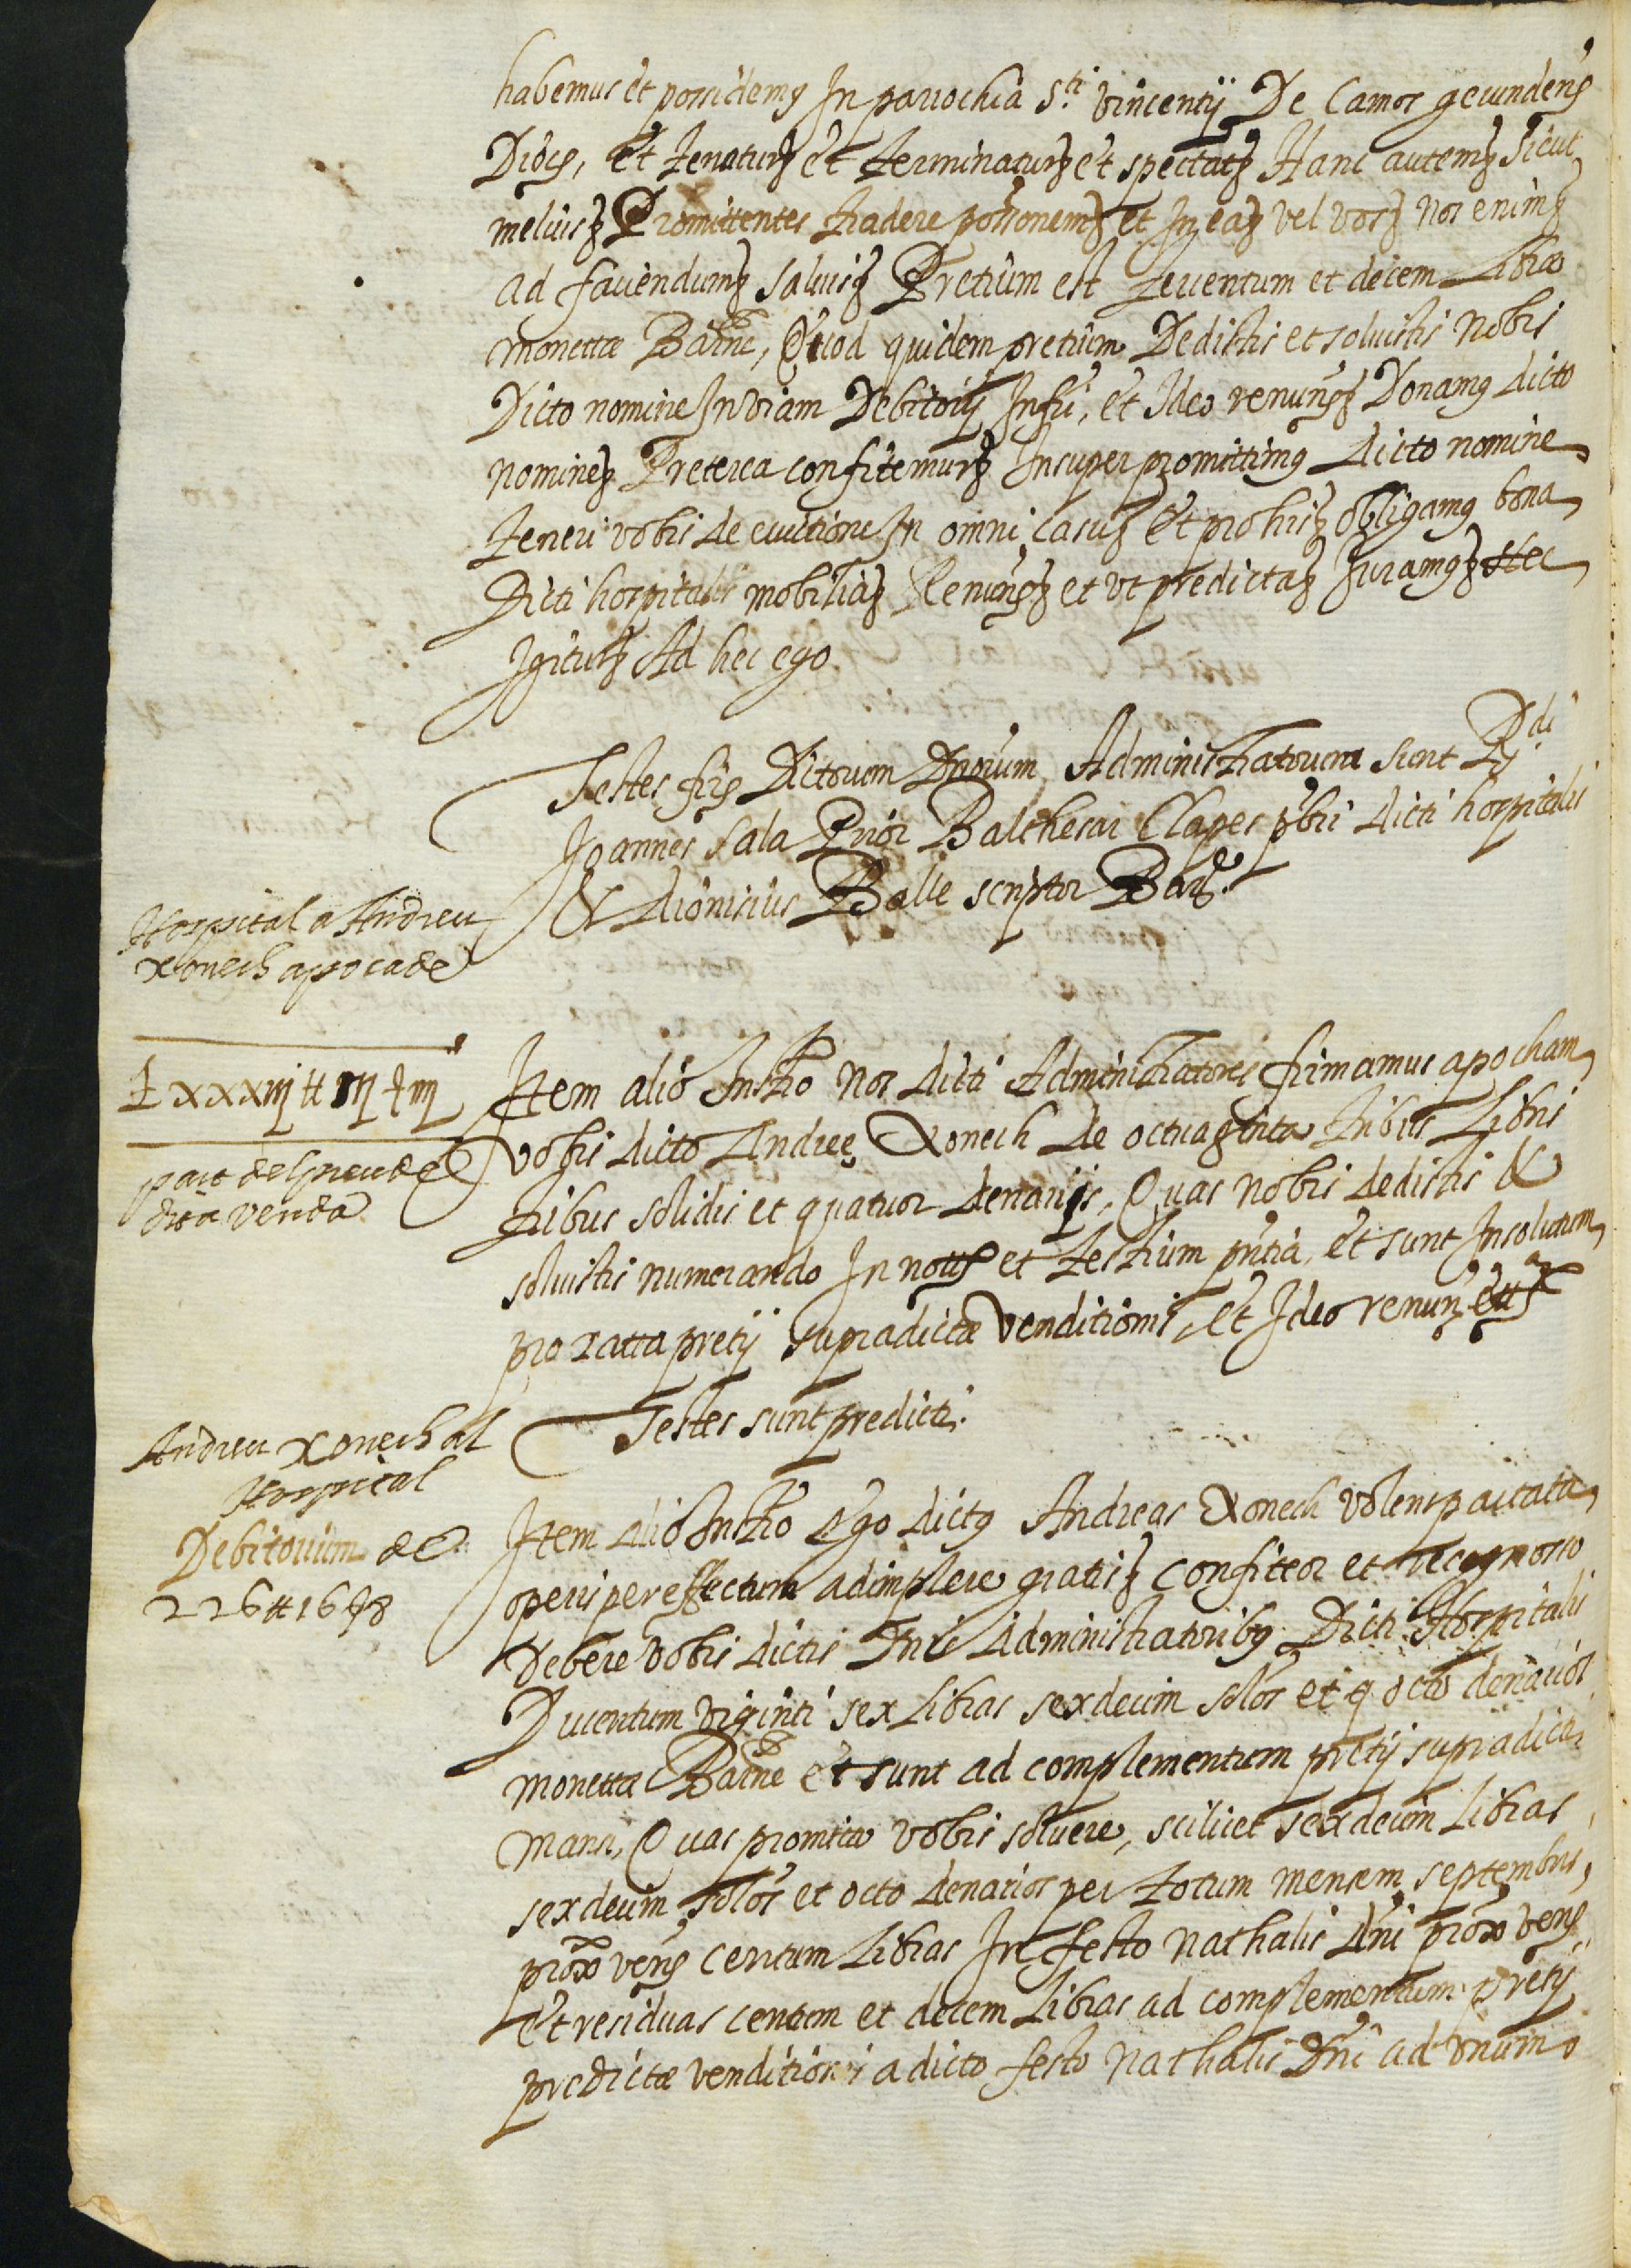 habemus et possidemꝯ In parrochia S.ti Vincentij De Camos gerundenȝ
Diocȝ, et tenaturȝ et terminaturȝ et spectatȝ Hanc autemȝ sicut
meliusȝ Promittentes tradere possonemȝ et In eaȝ vel vosȝ nos enimȝ
ad faciendumȝ salvisȝ Pretium est tercentum et decem Libræ
monettæ Barnæ, Quod quidem pretium Dedistis et solvistis nobis
Dicto nomine In viam Debitorij Infri, et Ideo renuntȝ Donamꝯ dicto
nomineȝ Preterea confitemurȝ Insuper promittimꝯ dicto nomine
teneri vobis de evictione In omni casuȝ Et pro hisȝ obligamꝯ bona
Dicti hospitalis mobiliaȝ Renuntȝ et ut predictaȝ Juramꝯȝ Hec
Igiturȝ Ad hec ego
Testes firȝ Dictorum Dnorum Administratorum sunt Rdi
Joannes Sala Prior Balthesar Clapes pbri dicti hospitalis
& dionisius Balle scriptor Barȝ.
Hospital a Andreu
Xonech apoca de
Lxxxiij ℔ iij ſ iiij
part del preu de
dita venda
Item alio Instro nos dicti Administratores firmamus apocham
vobis dicto Andreę Xonech de octuaginta tribus Libris
tribus solidis et quatuor denarijs, Quas nobis dedistis &
solvistis numerando In notȝ et testium pntia, et sunt In solutum
pro ratta pretij supradictæ venditionis, et Ideo renunȝ etta
Testes sunt predicti.
Andreu Xonech al
Hospital
Debitorium de
226 ℔ 16 ſ 8
Item alio Instro Ego dictꝯ Andreas Xonech volens pactata
operis per effectum adimplere gratisȝ confiteor et recognosco
Debere vobis dictis Dnis Administratoribꝯ Dicti Hospitalis
Ducentum viginti sex Libras sexdecim solos et octo denarios
monettæ Barne et sunt ad complementum pretij supradicti
mansi, Quas promitto vobis solvere, scilicet sexdecim Libras
sexdecim solos et octo denarios per totum mensem septembris,
proxo venȝ centum Libras In festo nathalis dni proxo venȝ,
Et residuas centum et decem Libras ad complementum pretij
predictæ venditionis a dicto festo nathalis Dni ad unum